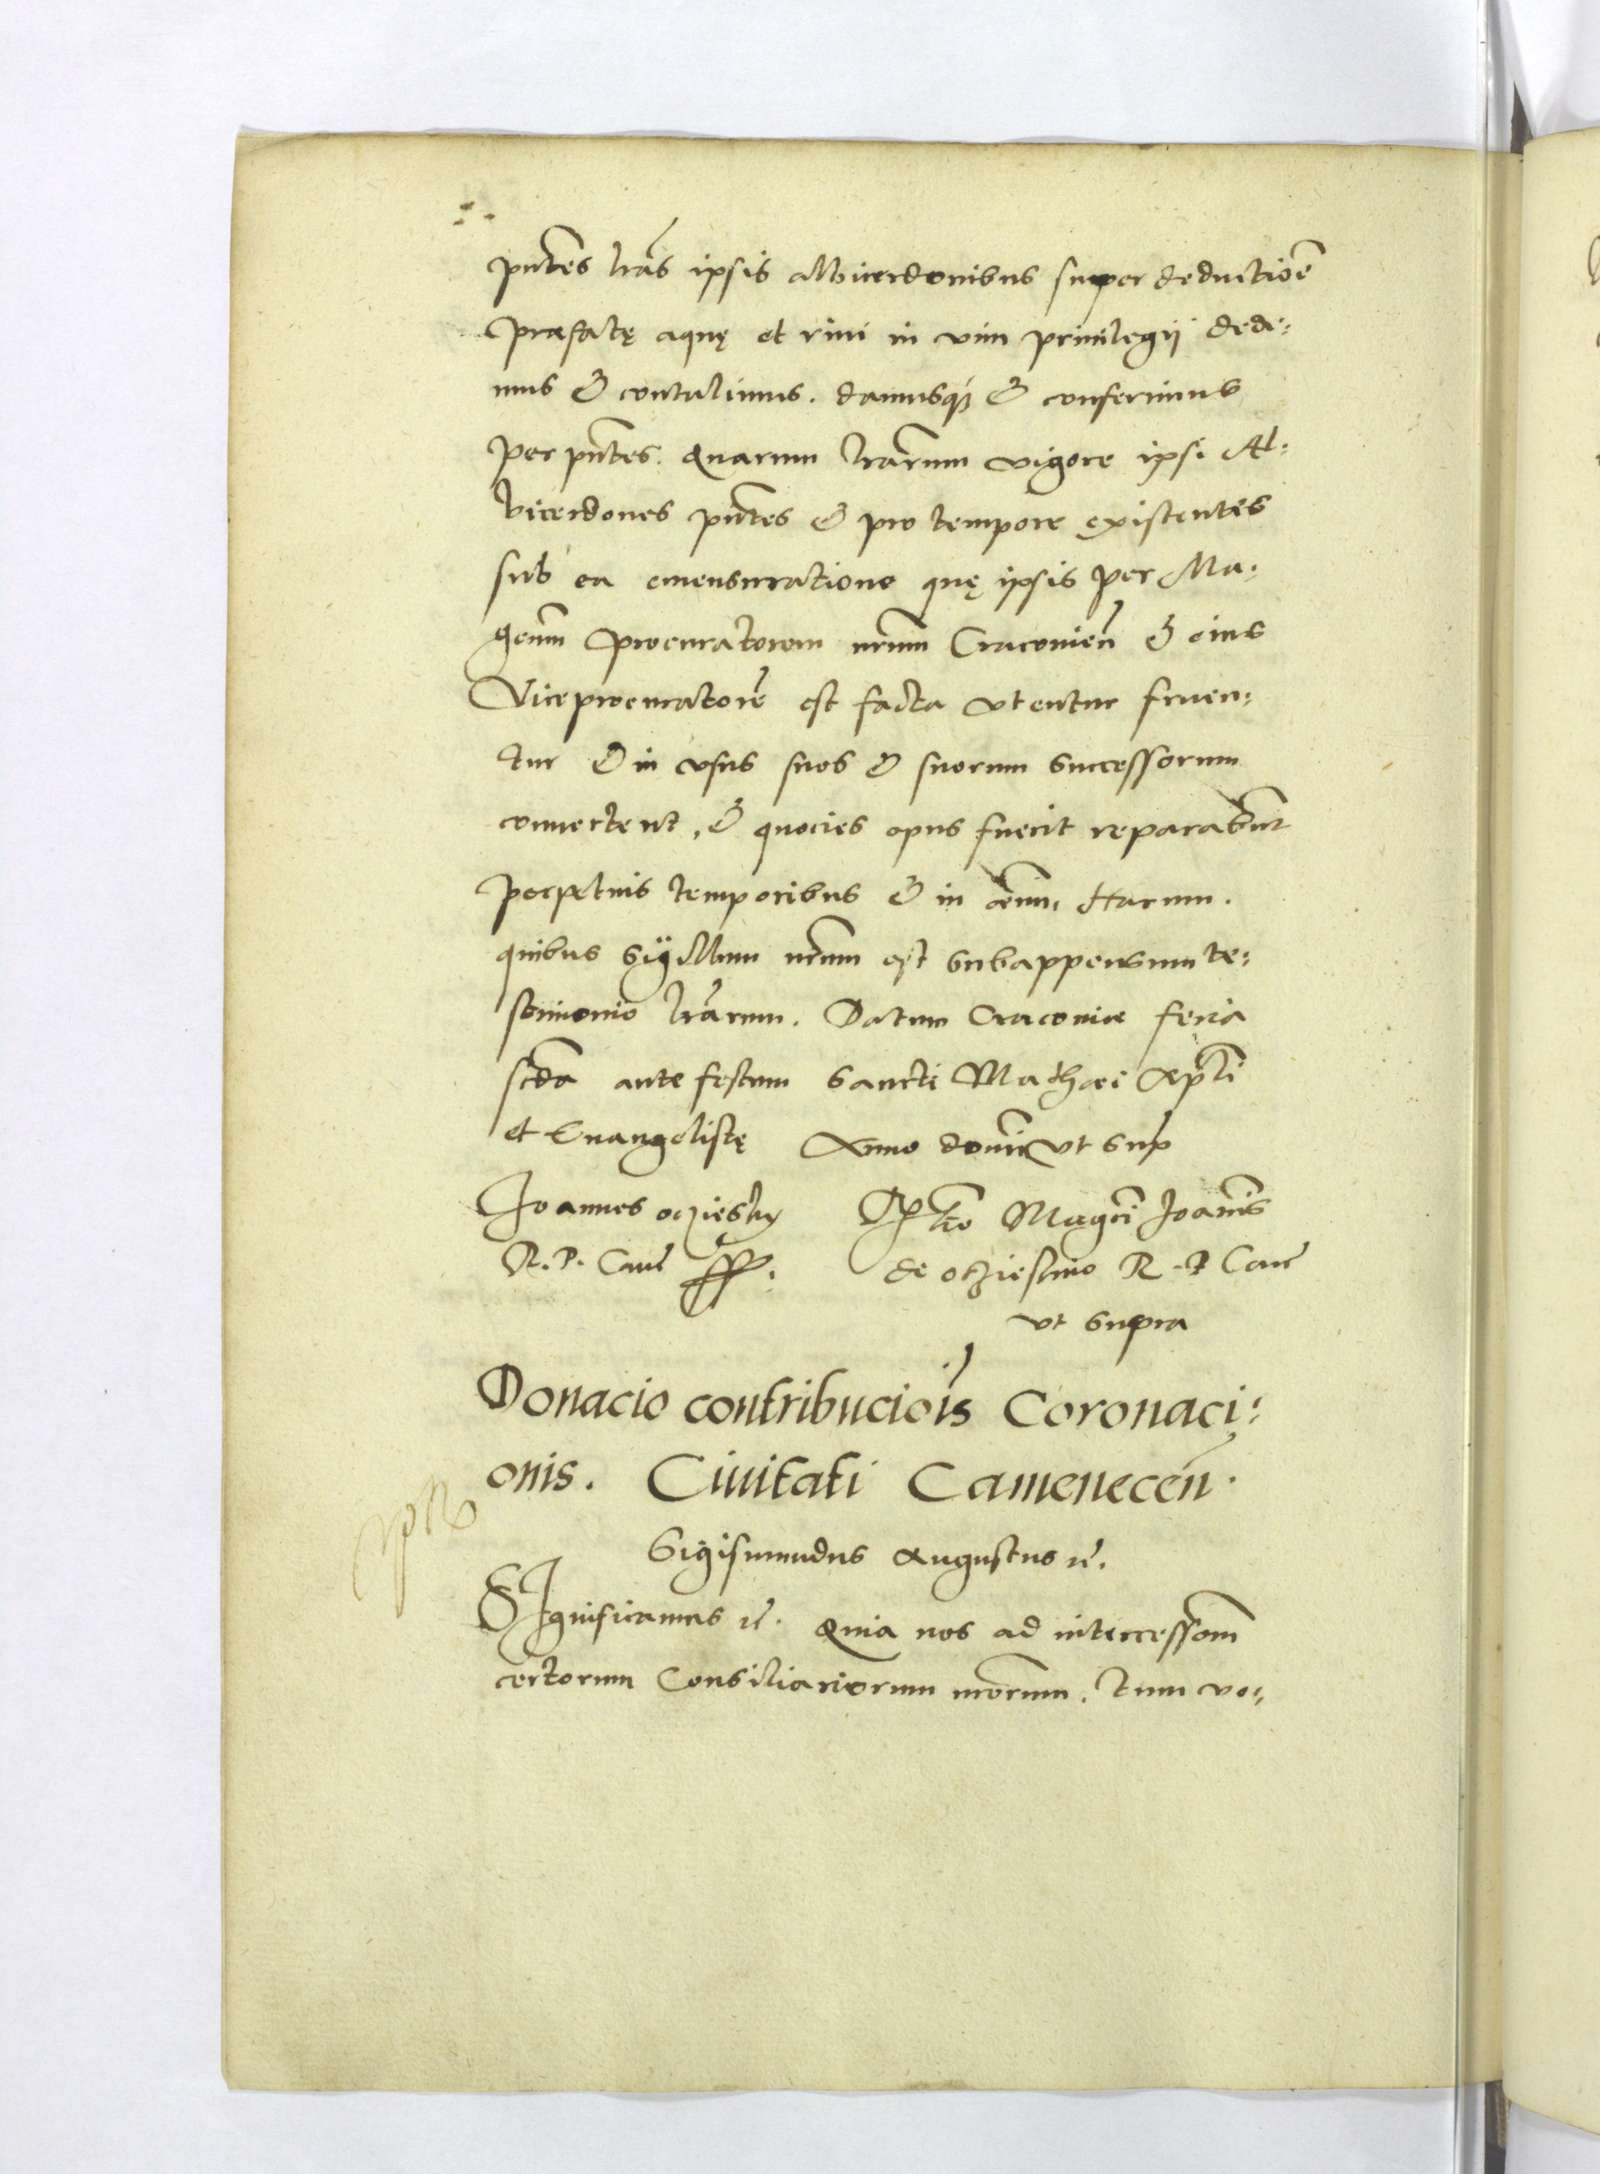 pntes lras ipsis albicerdonibus super deductioē
prefatę aquę et riui in vim priuilegii dedi:
mus & contulimus. damusq & conferimus
per pntes. Quarum lrarum vigore ipsi Al:
bicerdones pntes & pro tempore existentes
sub ea emensuratione quę ipsis per Ma:
gcum procuratorem nrum Cracouien & eius
Viceprocuratorē est facta vtentur fruen:
tur & in vsus suos & suorum successorum
conuertent, & quocies opus fuerit reparabunt
perpetuis temporibus & in eum. Harum.
quibus Sigillum nrum est subappensum te:
stimonio lrarum. Datum Cracouiae feria
scda ante festum Sancti Mathaei Apli
et Euangelistę Anno domini vt sup
Joannes ocziesky
R. P. Canc
Rlatio Magci Joannis
de oczieschino R. P. Canc
vt supra
Donacio contribuciois Coronaci:
onis. Ciuitati Camenecen.
Sigismundus Augustus etc.
SIgnificamus etc. Quia nos ad intercessiom
certorum Consiliariorum nrorum. tum vo: